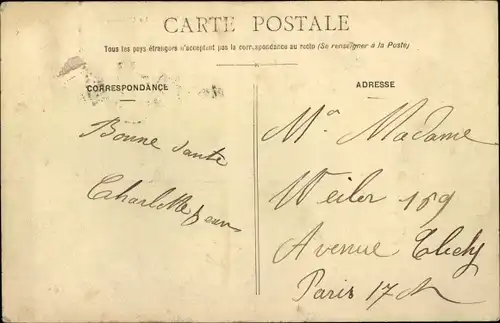 CARTE POSTALE
Tous les pays étrangers n'acceptent pas la correspondance au recto (Se renseigner à la Poste)
CORRESPONDANCE
Bonne Santé
Charlotte Jean
ADRESSE
Madame
Weiler 159
Avenue Clichy
Paris 17